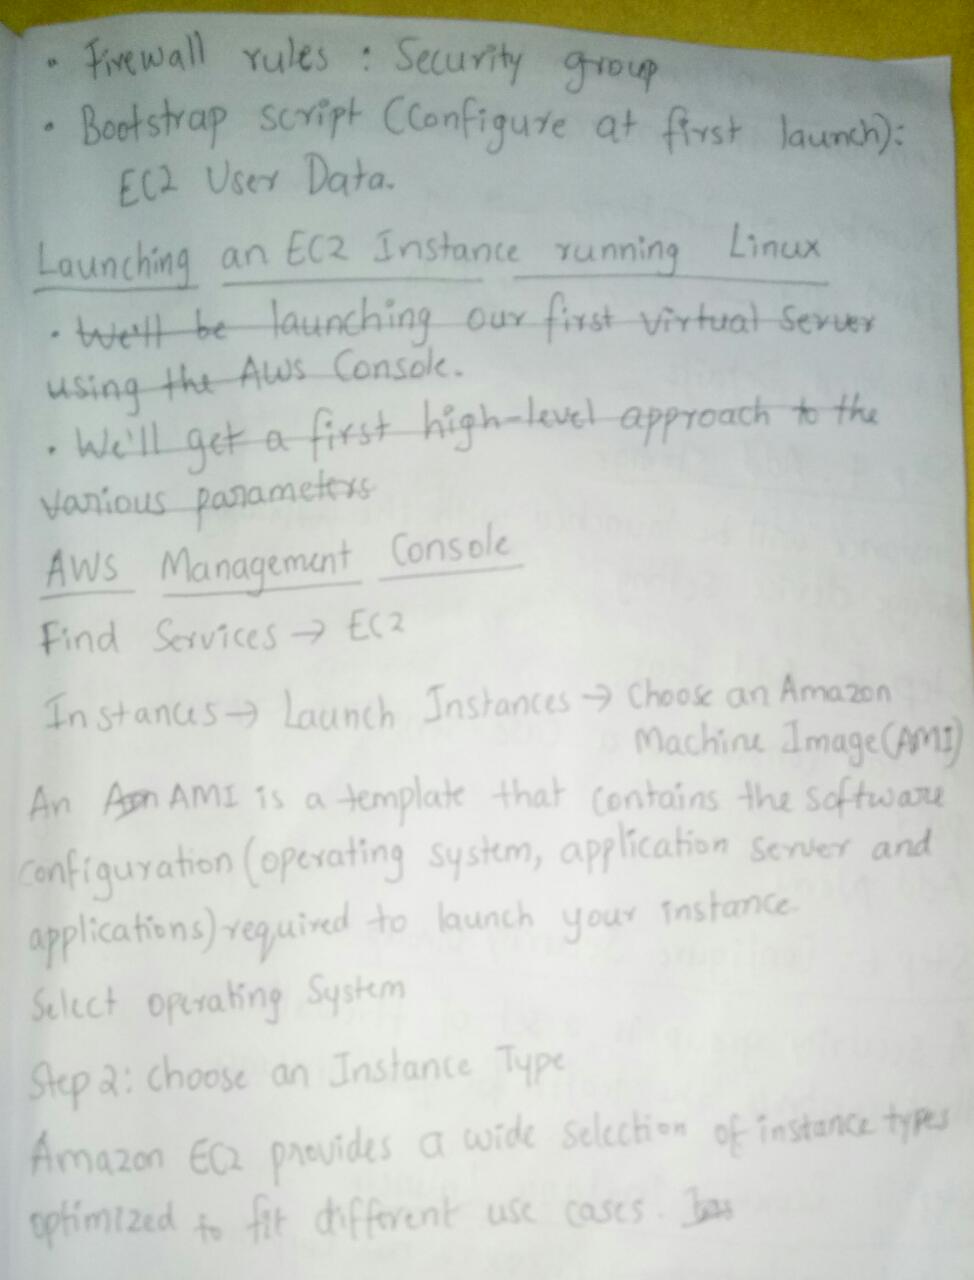 • Firewall rules : Security group
• Bootstrap script (Configure at first launch):
EC2 User Data.
Launching an EC2 Instance running Linux
• We'll be launching our first virtual Server
using the AWS Console.
• We'll get a first high-level approach to the
various parameters
AWS Management Console
Find Services → EC2
Instances → Launch Instances → Choose an Amazon
Machine Image(AMI)
An AMI is a template that contains the software
configuration (operating system, application server and
applications) required to launch your instance.
Select operating System
Step 2: Choose an Instance Type
Amazon EC2 provides a wide selection of instance types
optimized to fit different use cases.